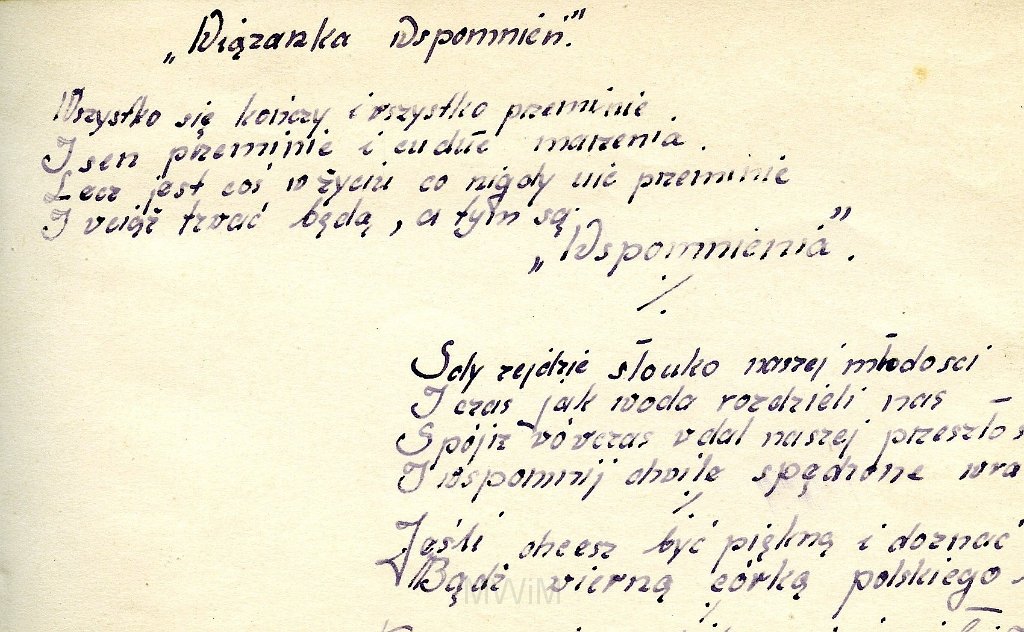 „Wiązanka Wspomnień."
Wszystko się kończy i wszystko przeminie
I sen przeminie i cudne marzenia.
Lecz jest coś w życiu co nigdy nie przeminie
I wciąż trwać będą, a tym są
„Wspomnienia".
Gdy zejdzie słonko naszej młodości
I czas jak woda rozdzieli nas
Spójrz wówczas w dal naszej przeszłoś
I wspomnij chwile spędzone wra
Jeśli chcesz być piękną i doznać
Bądź wierną córką polskiego
MWiM